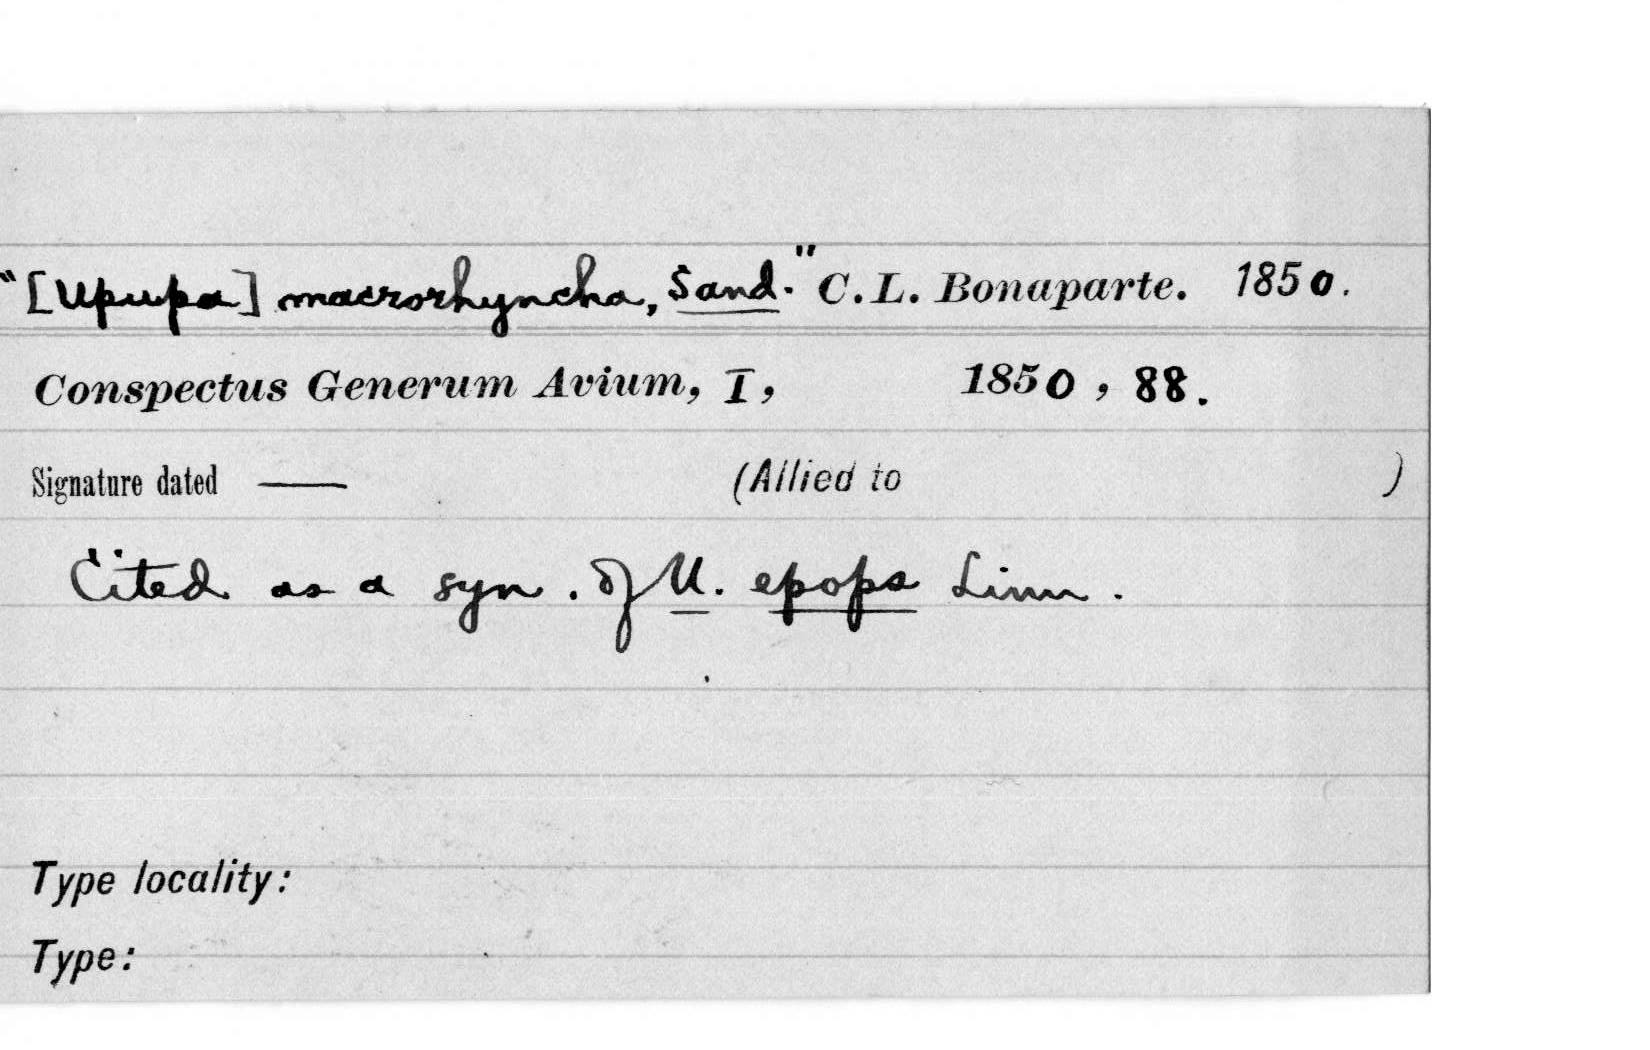 "[Upupa] macrorhyncha, Sand." C. L. Bonaparte. 1850.
Conspectus Generum Avium, I, 1850, 88.
Signature dated — (Allied to )
Cited as a syn. of U. epops Linn.
Type locality:
Type: